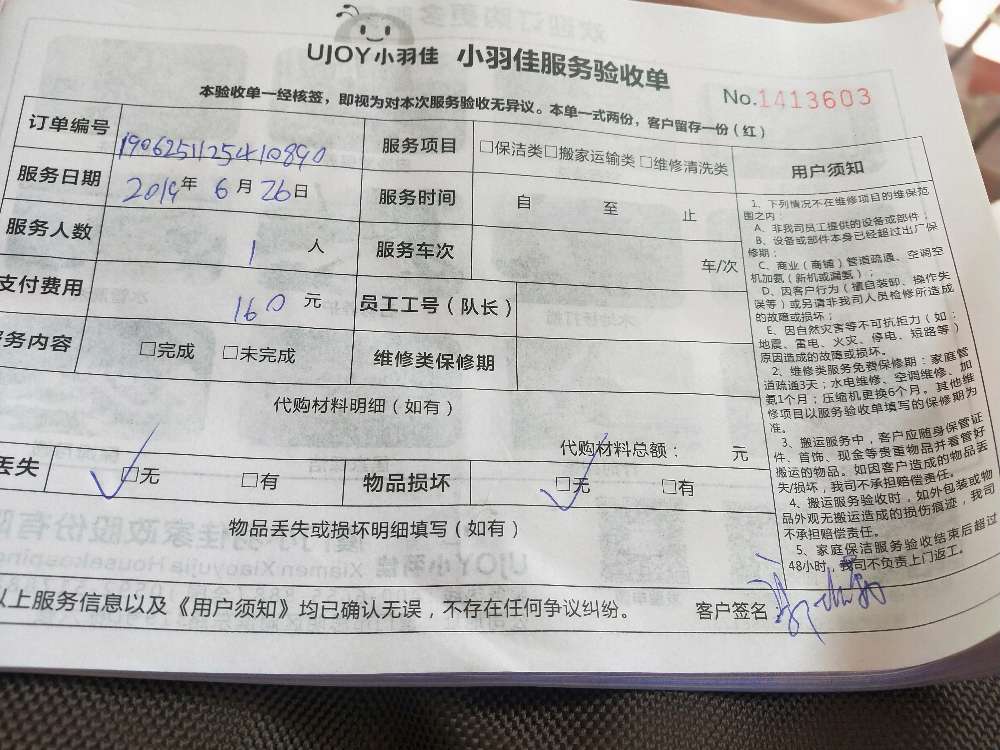 UJOY小羽佳 小羽佳服务验收单
No.1413603
本验收单一经核签，即视为对本次服务验收无异议。本单一式两份，客户留存一份（红）
订单编号 1906251125410890 服务项目 □保洁类□搬家运输类□维修清洗类
服务日期 2019年6月26日 服务时间 自 至 止
服务人数 1人 服务车次 车/次
支付费用 160元 员工工号（队长）
务内容 □完成 □未完成 维修类保修期
代购材料明细（如有）
代购材料总额： 元
丢失 □无 □有 物品损坏 □无 □有
物品丢失或损坏明细填写（如有）
以上服务信息以及《用户须知》均已确认无误，不存在任何争议纠纷。 客户签名
用户须知
1、下列情况不在维修项目的维保范
围之内：
A、非我司员工提供的设备或部件；
B、设备或部件本身已经超过出厂保
修期；
C、商业（商铺）管道疏通、空调空
机加氨（新机或漏氨）；
D、因客户行为（擅自装卸、操作失
误等）或另请非我司人员检修所造成
的故障或损坏；
E、因自然灾害等不可抗拒力（如：
地震、雷电、火灾、停电、短路等）
原因造成的故障或损坏。
2、维修类服务免费保修期：家庭管
道疏通3天；水电维修、空调维修、加
氨1个月；压缩机更换6个月。其他维
修项目以服务验收单填写的保修期为
准。
3、搬运服务中，客户应随身保管证
件、首饰、现金等贵重物品并看管好
搬运的物品。如因客户造成的物品丢
失/损坏，我司不承担赔偿责任。
4、搬运服务验收时，如外包装或物
品外观无搬运造成的损伤痕迹，我司
不承担赔偿责任。
5、家庭保洁服务验收结束后超过
48小时，我司不负责上门返工。